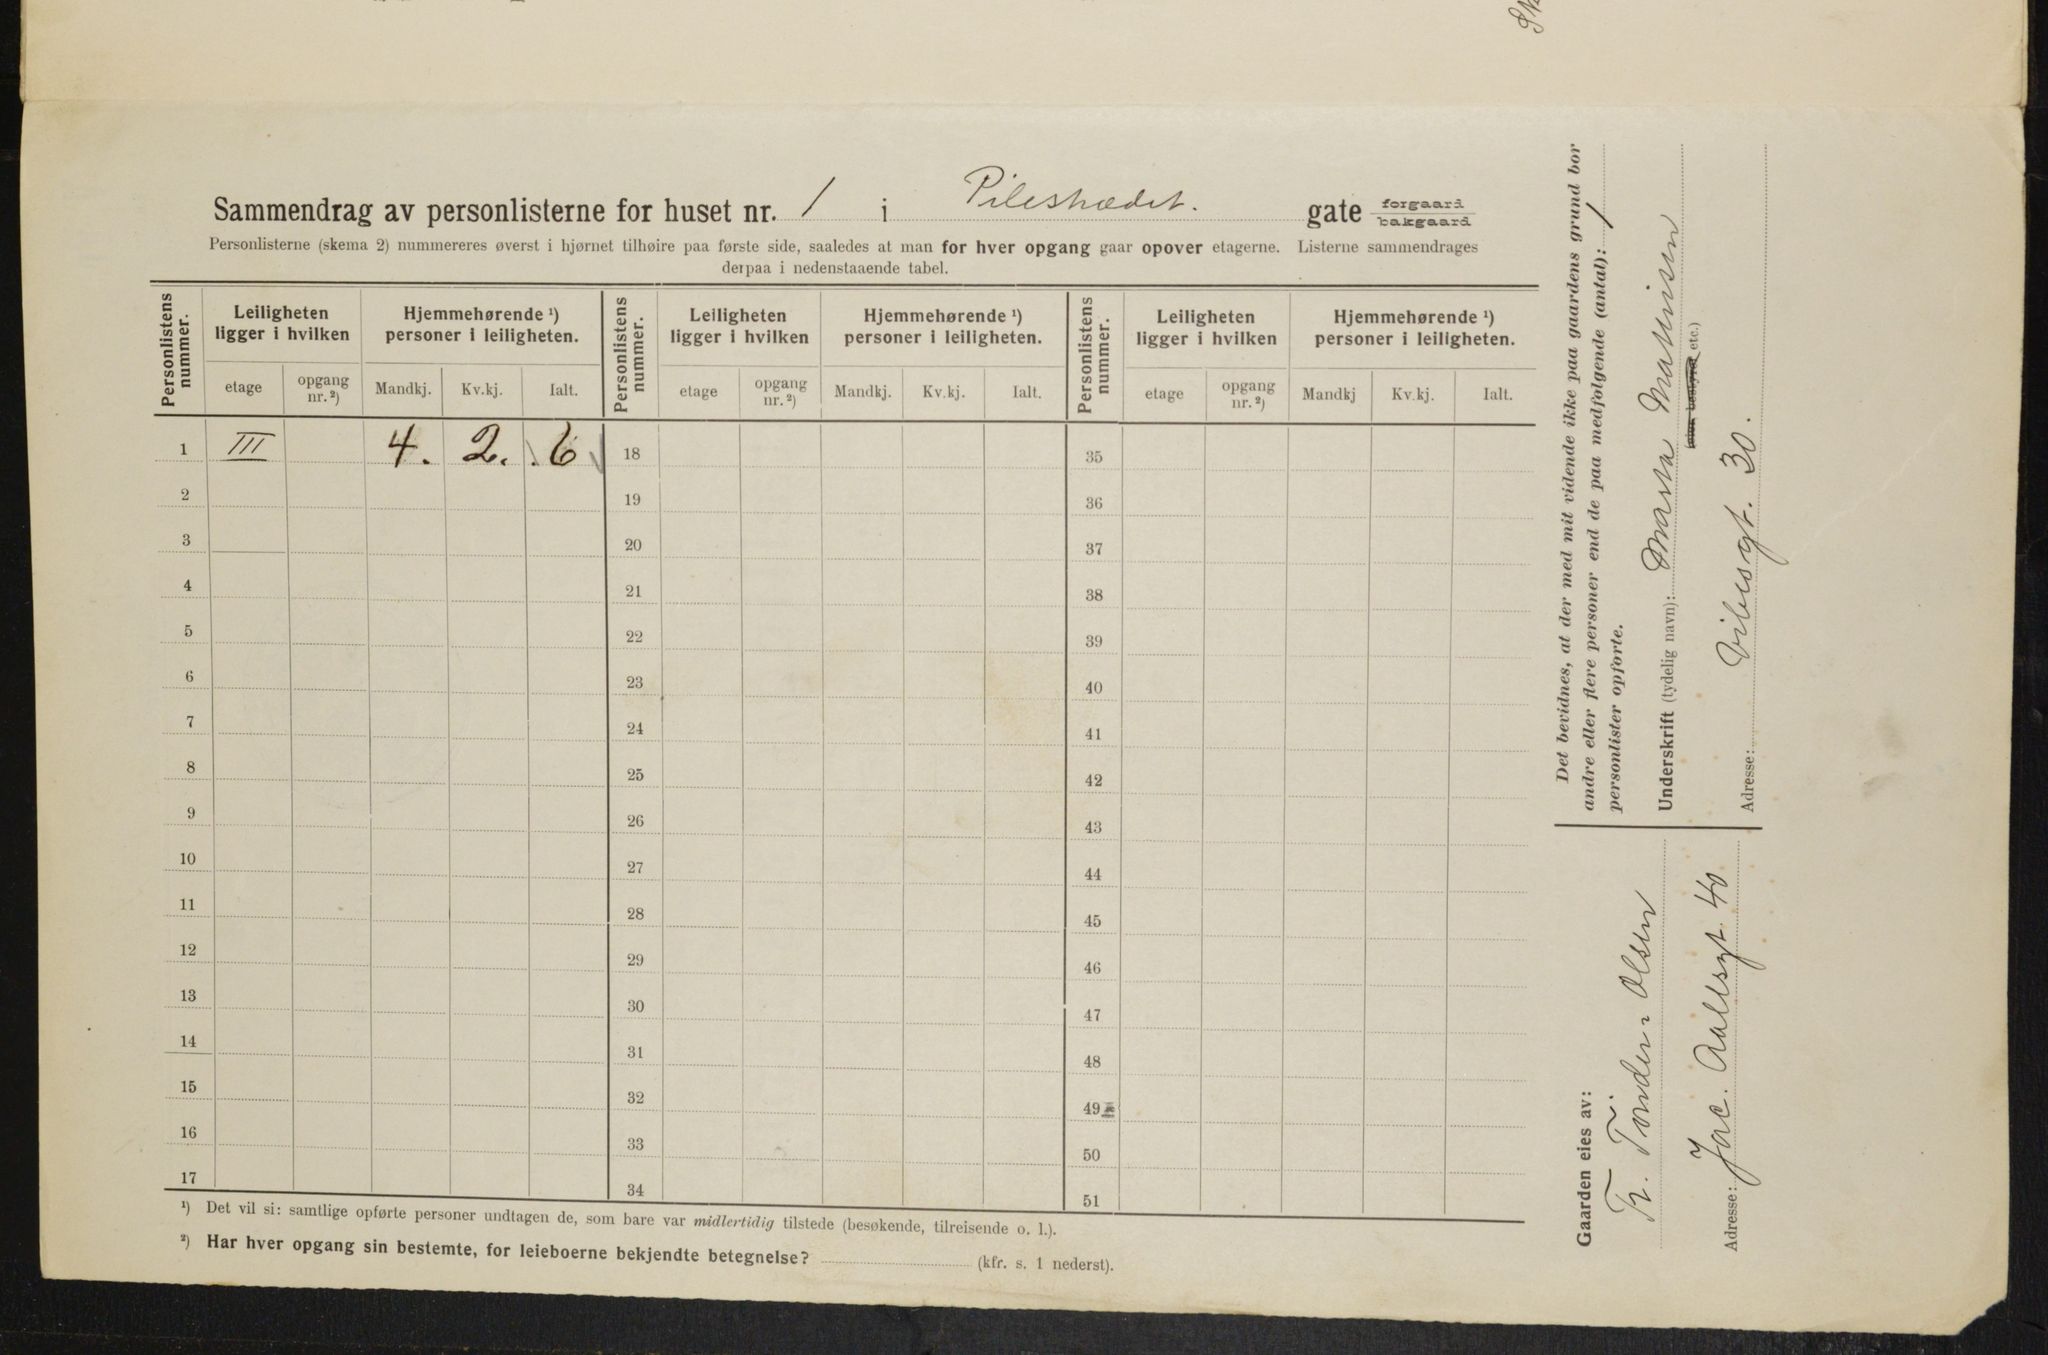 Sammendrag av personlisterne for huset nr. 1 i Pilestrædet. gate forgaard bakgaard
Personlisterne (skema 2) nummereres øverst i hjørnet tilhøire paa første side, saaledes at man for hver opgang gaar opover etagerne. Listerne sammendrages
derpaa i nedenstaaende tabel.
Personlistens nummer. Leiligheten ligger i hvilken Hjemmehørende ¹) personer i leiligheten. Personlistens nummer. Leiligheten ligger i hvilken Hjemmehørende ¹) personer i leiligheten. Personlistens nummer. Leiligheten ligger i hvilken Hjemmehørende ¹) personer i leiligheten.
etage opgang nr. ²) Mandkj. Kv.kj. Ialt. etage opgang nr. ²) Mandkj. Kv.kj. Ialt. etage opgang nr. ²) Mandkj Kv.kj. Ialt.
1 III 4. 2. 6 18 35
2 19 36
3 20 37
4 21 38
5 22 39
6 23 40
7 24 41
8 25 42
9 26 43
10 27 44
11 28 45
12 29 46
13 30 47
14 31 48
15 32 49
16 33 50
17 34 51
¹) Det vil si: samtlige opførte personer undtagen de, som bare var midlertidig tilstede (besøkende, tilreisende o. l.).
²) Har hver opgang sin bestemte, for leieboerne bekjendte betegnelse? (kfr. s. 1 nederst).
Det bevidnes, at der med mit vidende ikke paa gaardens grund bor
andre eller flere personer end de paa medfølgende (antal): 1
personlister opførte.
Underskrift (tydelig navn): Marta Mathisen
etc.)
Adresse: Vibesgt. 30.
Gaarden eies av:
Tr. Tönder-Olsen
Adresse: Jac. Aallsgt 40